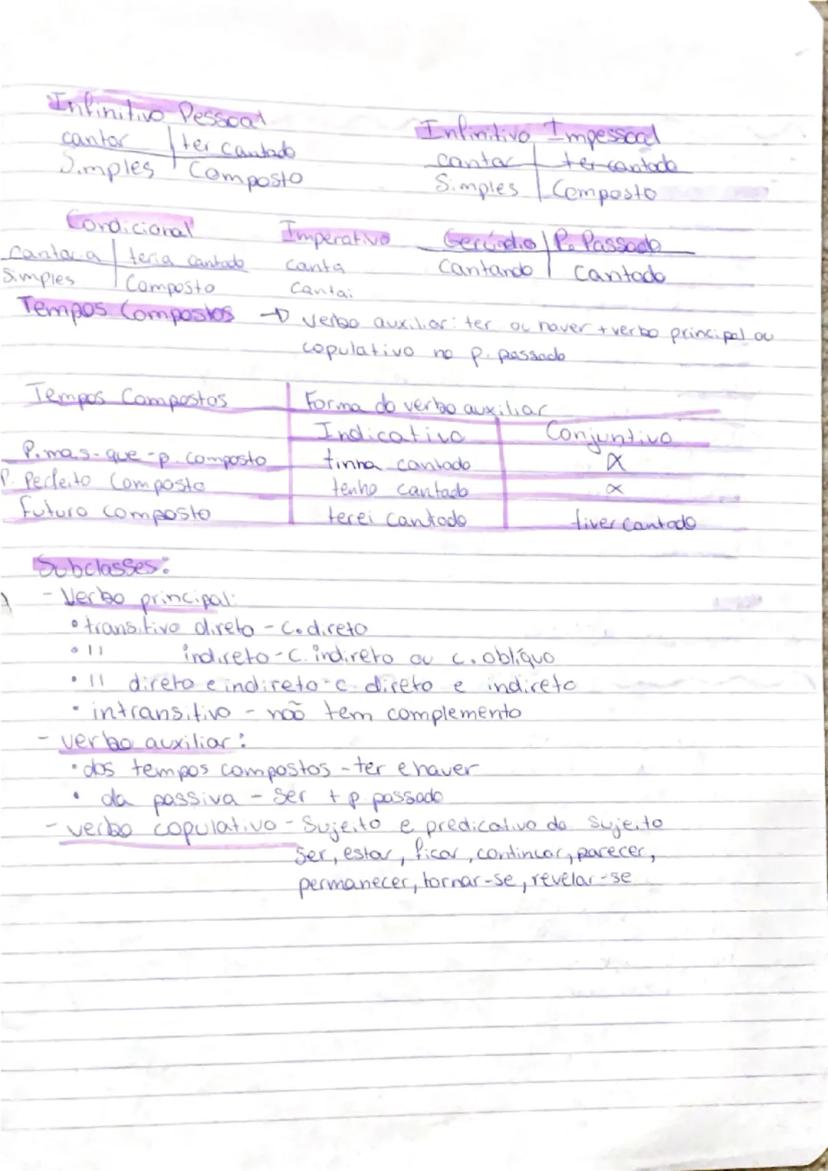 Infinitivo Pessoal
cantar | ter cantado
Simples | Composto
Infinitivo Impessoal
cantar | ter cantado
Simples | Composto
Condicional
cantaria | teria cantado
Simples | Composto
Imperativo
canta
cantai
Gerúndio | P. Passado
Cantando | Cantado
Tempos Compostos → verbo auxiliar: ter ou haver + verbo principal ou
copulativo no p. passado
Tempos Compostos | Forma do verbo auxiliar
Indicativo | Conjuntivo
P. mas-que-p. composto | tinha cantado | X
P. Perfeito Composto | tenho cantado | X
Futuro composto | terei cantado | tiver cantado
Subclasses:
- Verbo principal:
• transitivo direto - C. direto
• 11 indireto - C. indireto ou c. oblíquo
• 11 direto e indireto - c. direto e indireto
• intransitivo - não tem complemento
- verbo auxiliar:
• dos tempos compostos - ter e haver
• da passiva - ser + p. passado
- verbo copulativo - Sujeito e predicativo do sujeito
ser, estar, ficar, continuar, parecer,
permanecer, tornar-se, revelar-se